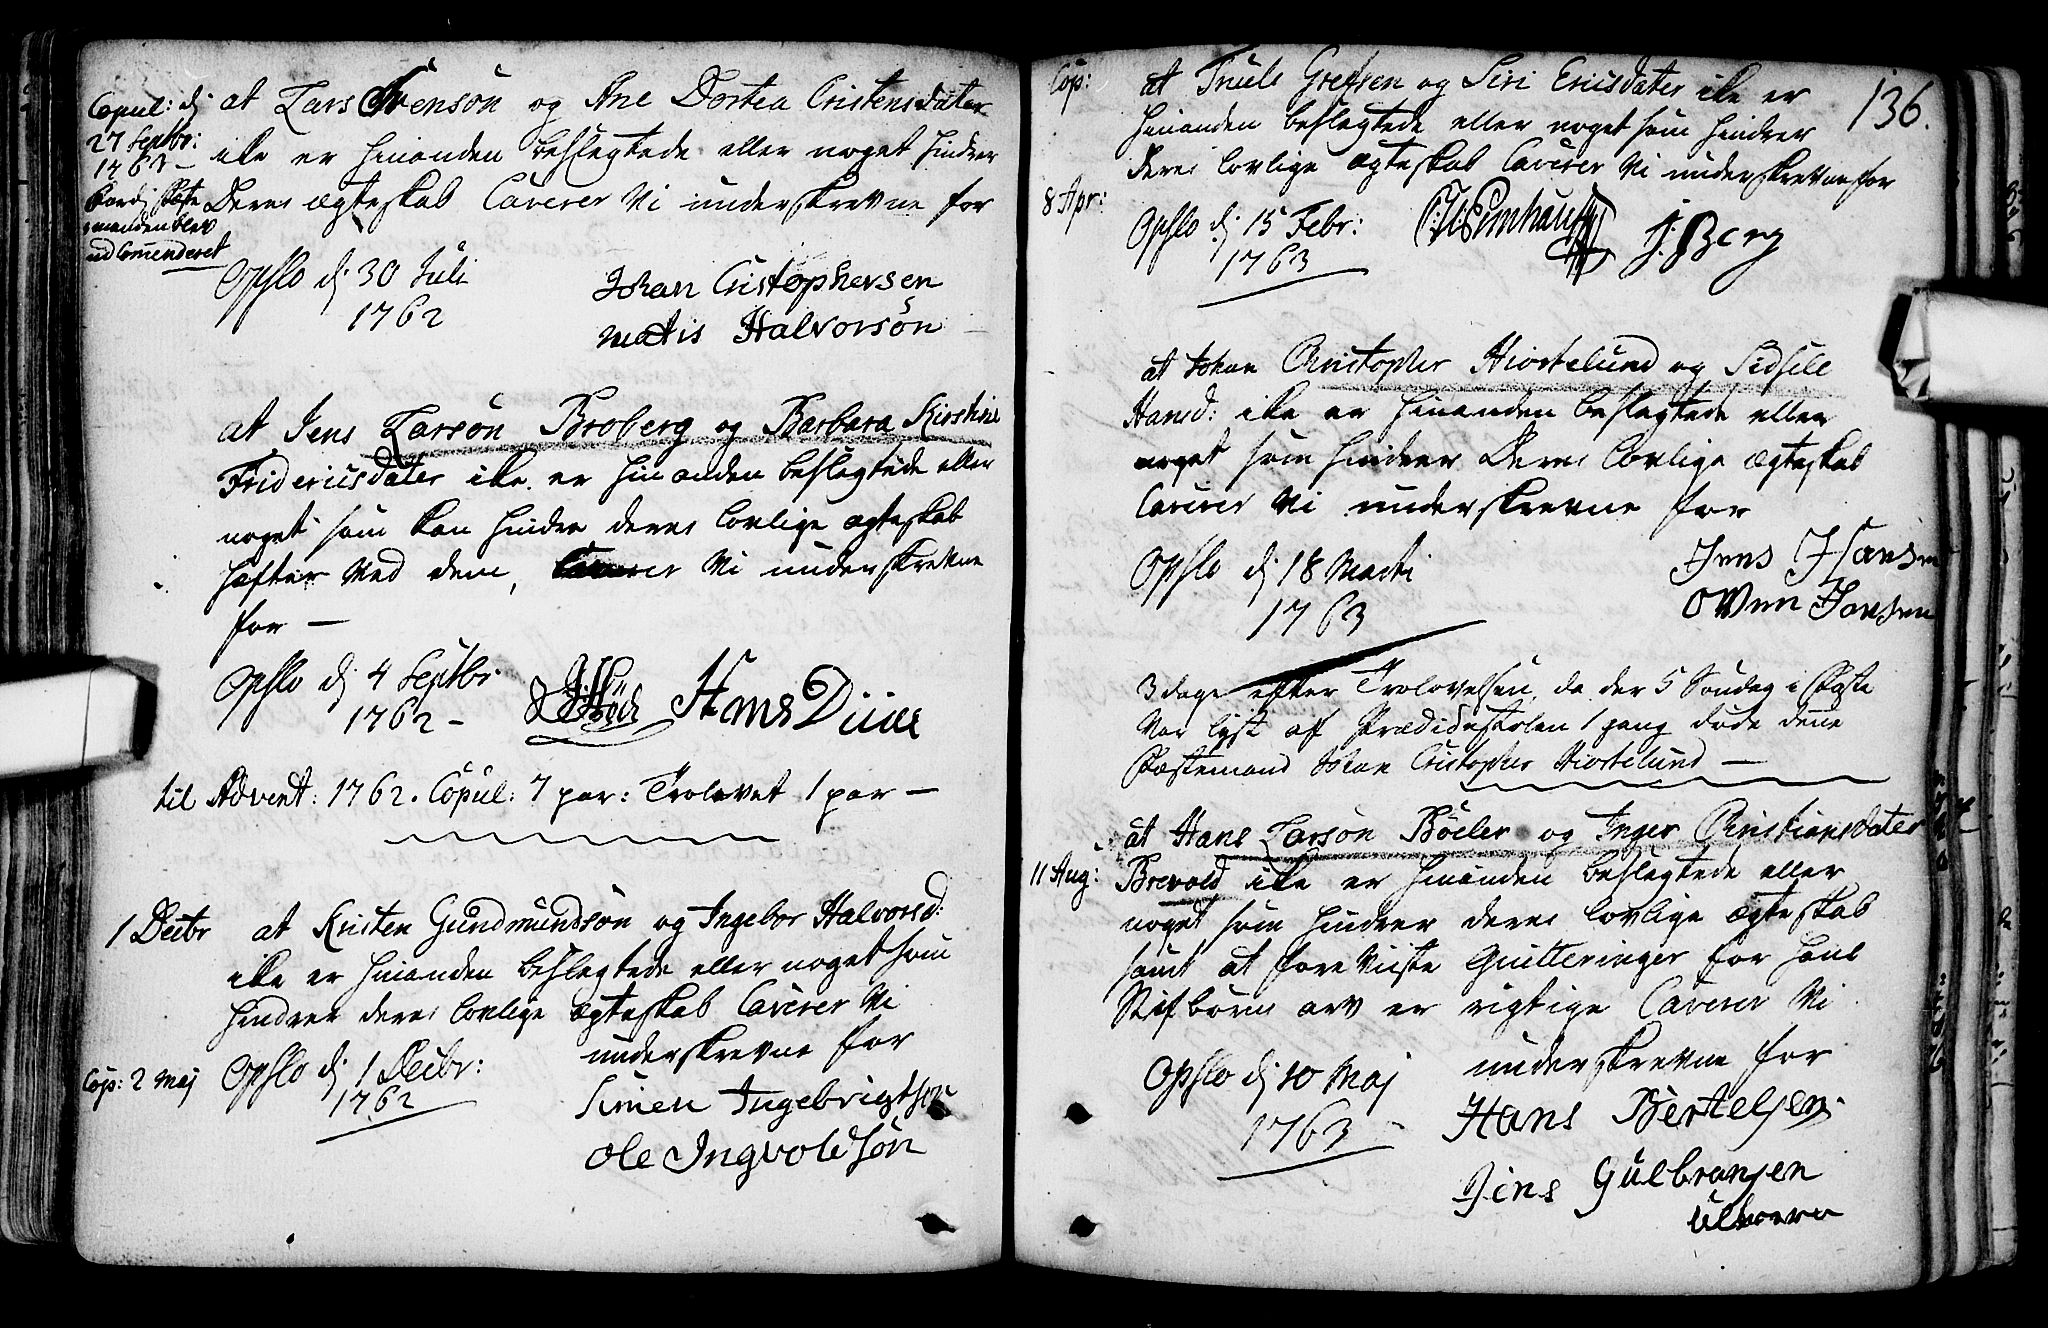 Copul: dj
27 Septbr:
1763 –
fordi fæste
manden blev
ud Comenderet
at Lars Svensøn og Ane Dortea Cristensdater
ike er hinanden beslegtede eller noget hindrer
Deres ægteskab Caverer Vi underskrevne for
Opslo dj 30 Juli
1762
Johan Cristophersen
matis Halvorsøn
at Jens Larsøn Broberg og Barbara Kirstine
Fridericsdater ike er hinanden beslegtede eller
noget som kan hindre deres lovlige egteskab
hæfter ved dem, Caverer Vi underskrevne
for –
Opslo dj 4 Septbr
1762 –
Hans Diine
til Advent: 1762. Copul: 7 par: Trolovet 1 par –
1 Decbr
at Kristen Gundmundsøn og Ingebor Halvorsd:
ike er hinanden beslegtede eller noget som
hindrer deres lovlige ægteskab Caverer Vi
underskrevne for
Cop: 2 Maj
Opslo dj 1 Decbr:
1762
Simen Ingebrigtsøn
Ole Ingvoldsøn
136.
Cop:
8 Apr:
at Truels Grefsen og Siri Ericsdater ike er
hinanden beslegtede eller noget som hindrer
deres lovlige ægteskab Caverer Vi underskrevne for
Opslo dj 15 Febr:
1763
J: Berg
at Johan Christopher Hiortelund og Sidsele
Hansd: ike er hinanden beslegtede eller
noget som hindrer Deres lovlige ægteskab
Caverer Vi underskrevne for
Opslo dj 18 Marti
1763
Jens Hansen
Oven Jansen
3 dage efter Trolovelsen, da der 5 Søndag i Faste
var lyst af Prædikestolen 1 gang døde denne
Fæstemand Johan Cristopher Hiortelund –
11 Aug:
at Hans Larsøn Bøeler og Inger Christiansdater
Brevold ike er hinanden beslegtede eller
noget som hindrer deres lovlige ægteskab
samt at foreviiste Quitteringer for hans
Stifbørns arv er rigtige Caverer Vi
underskrevne for
Opslo dj 10 Maj
1763
Hans Bertelsen
Jens Gulbransen
Ulvøern